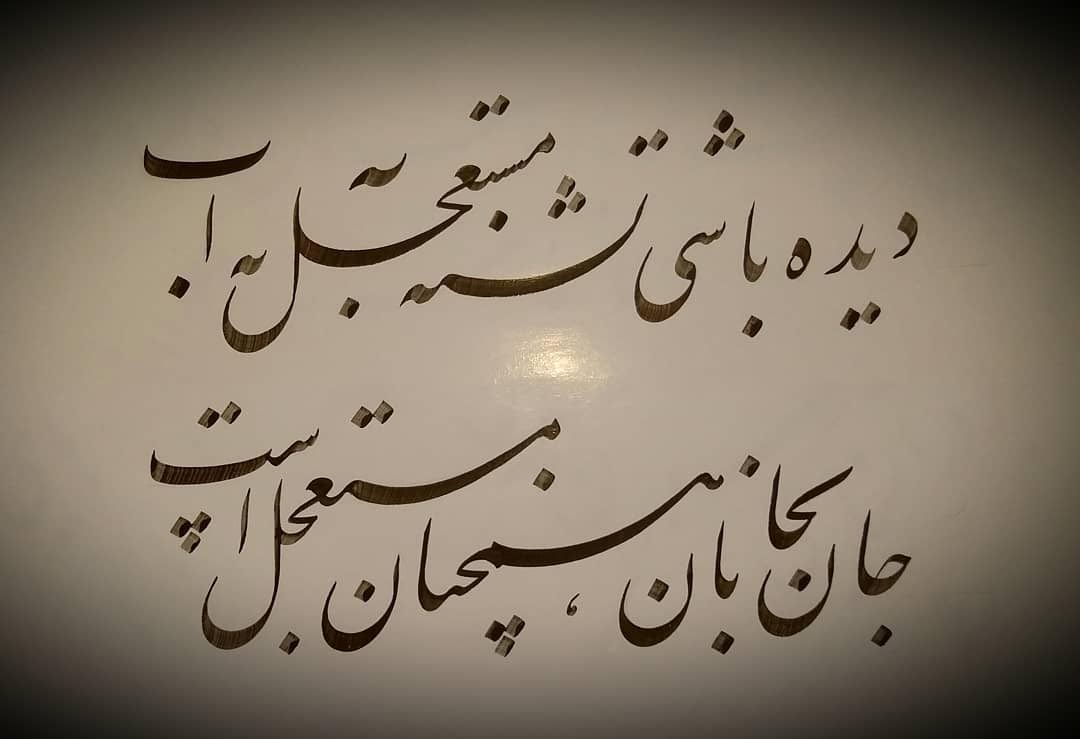 دیده باشی تشنه مستعجل به آب
جان بجانان ، همچنان مستعجل است